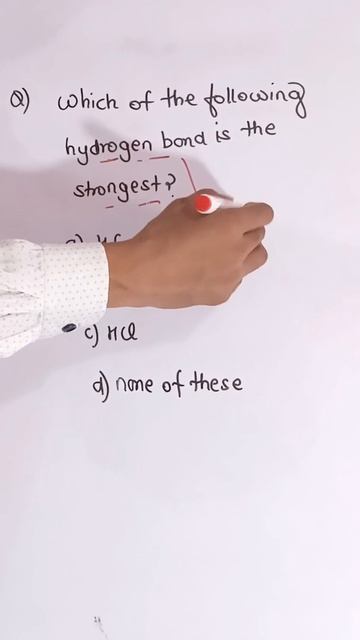 Q) Which of the following
hydrogen bond is the
strongest?
c) HCl
d) none of these